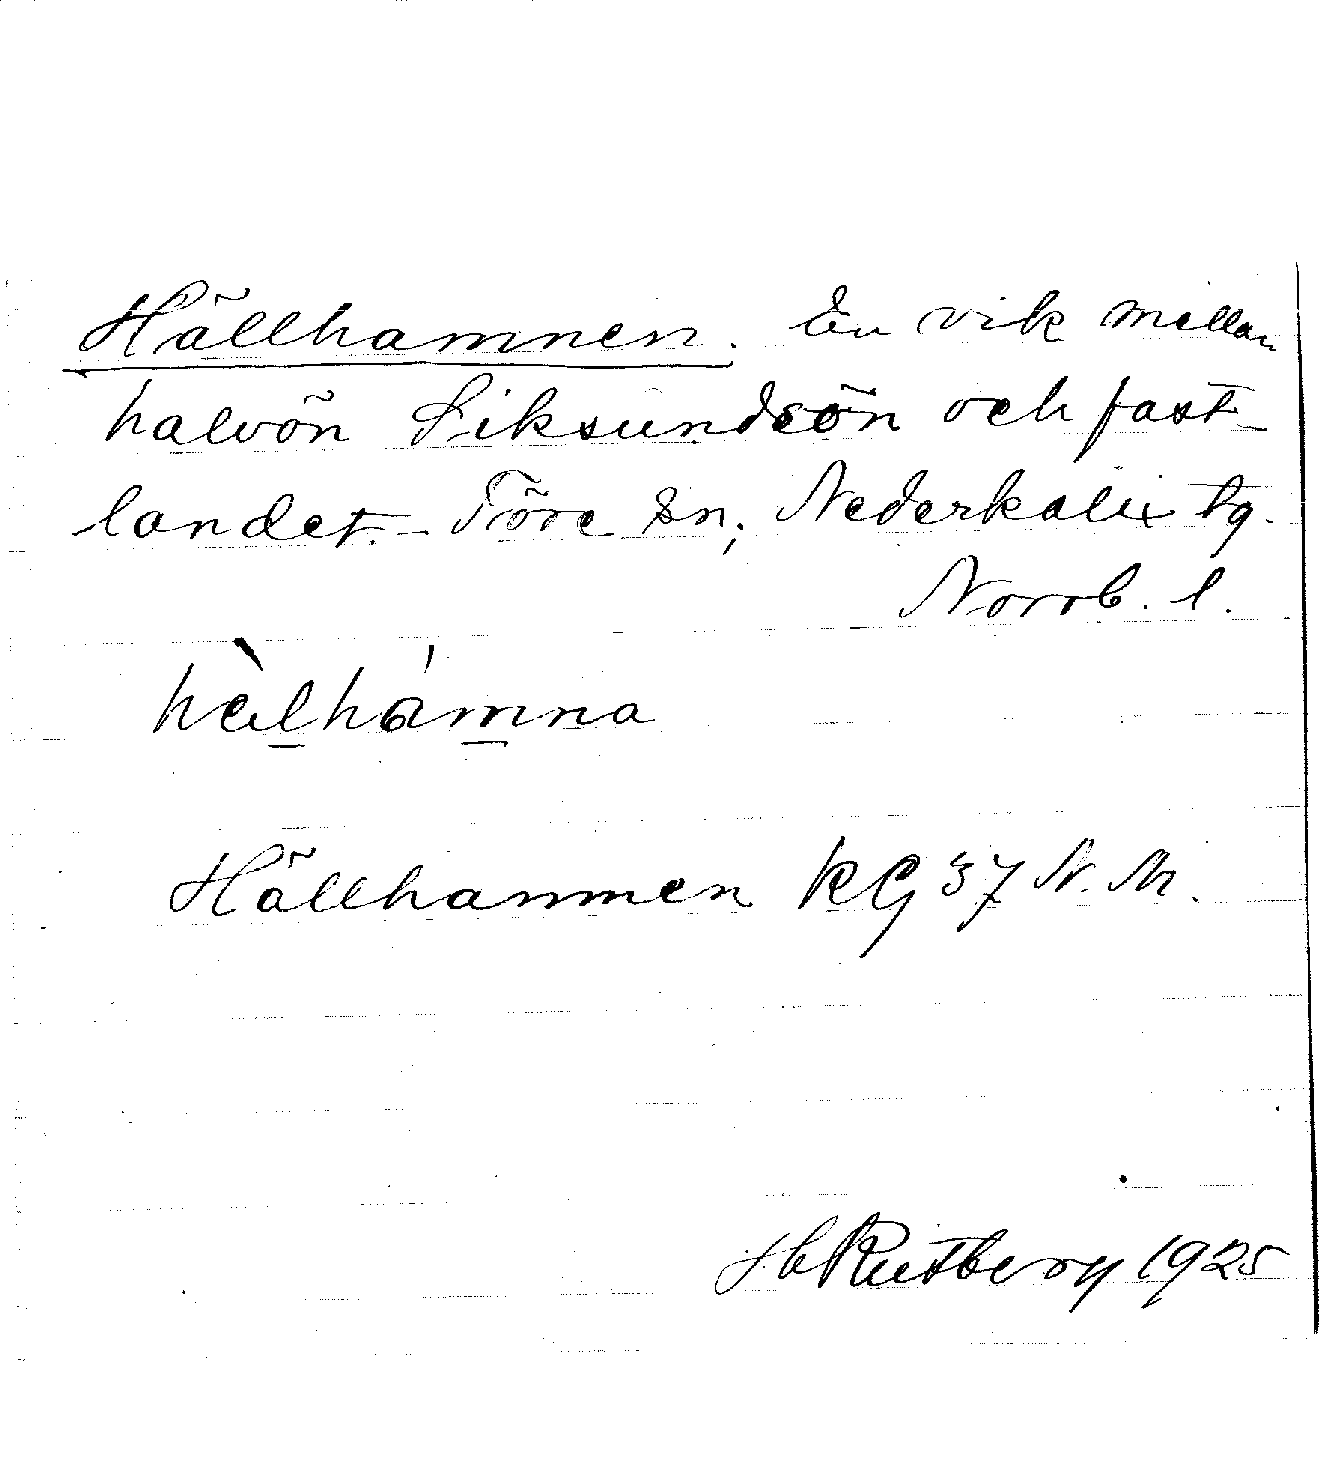 Hällhamnen. En vik mellan
halvön Siksundsön och fast-
landet. - Töre sn; Nederkalix tg.
Norrb. l.
hèlhámna
Hällhamnen KG 37 N. M.
H Rutberg 1925